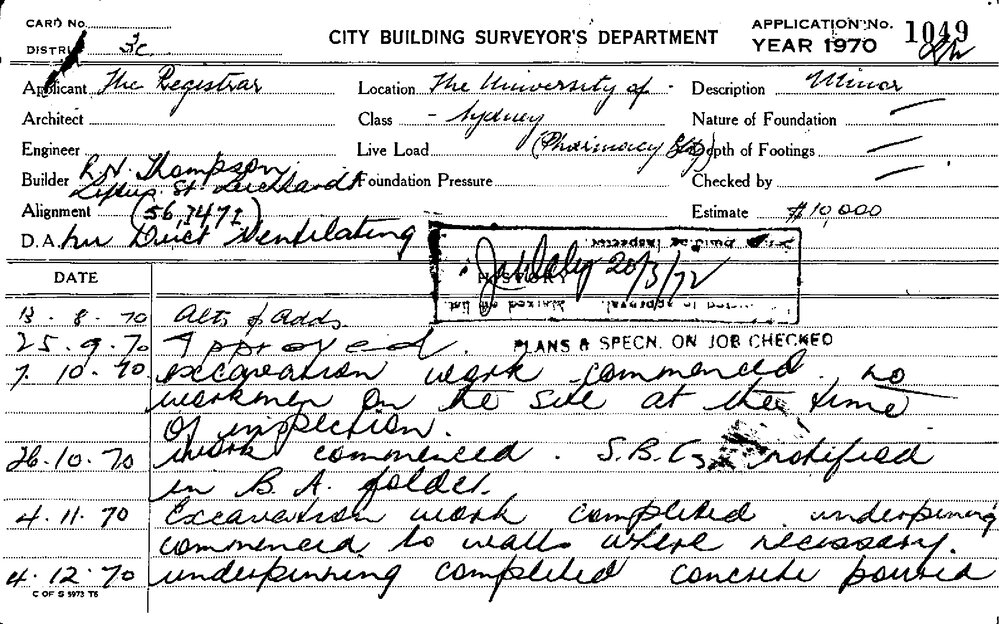 CARD No.
CITY BUILDING SURVEYOR'S DEPARTMENT
APPLICATION No. 1049
DISTRICT
YEAR 1970
Applicant The Registrar Location The University of Description Minor
Architect Class - Sydney Nature of Foundation
Engineer Live Load (Pharmacy Bldg) Depth of Footings
Builder R.N. Thompson Foundation Pressure Checked by
Loftus St. Leichhardt
Alignment (56,7471) Estimate $10,000
D.A. Duct Ventilating
20/3/72
DATE HISTORY
13.8.70 Alts & adds.
25.9.70 Approved. PLANS & SPECN. ON JOB CHECKED
7.10.70 excavation work commenced. no
workmen on the site at the time
of inspection.
26.10.70 work commenced. S.B.G. notified
in B.A. folder.
4.11.70 Excavation work completed. underpining
commenced to walls where necessary.
4.12.70 underpinning completed concrete poured
C OF S 5973 T6